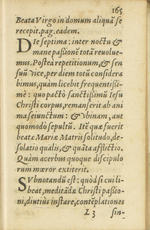 165
Beata Virgo in domum aliquā se
recepit. pag. eadem.
DIe septima: inter noctu &
mane pasionē totā reuolue-
mus. Postea repetitionum, & sen
suū vice, per diem totā considera
bimus, quàm licebit frequentissi-
mè: quo pactò sanctissimū Iesu
Christi corpus, remanserit ab ani
ma seiunctum: & vbinam, aut
quomodo sepultū. Itē quæ fuerit
beatæ Mariæ Matris solitudo, de-
solatio qualis, & quāta afflictio.
Quàm acerbus quoque discipulo
rum mæror extiterit.
SVbnotandū est: quòd si cui li-
beat, meditādæ Christi pasio-
ni, diutius instare, contēplationes
L 3 sin-